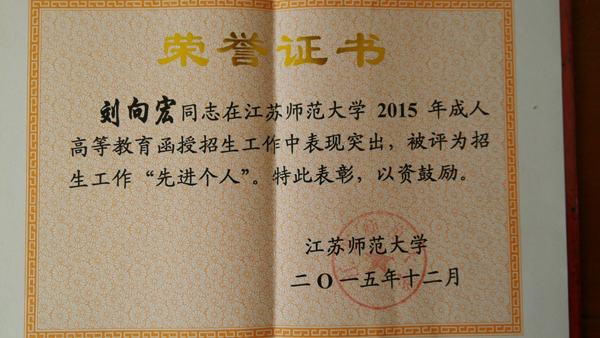 荣誉证书
刘向宏同志在江苏师范大学 2015 年成人
高等教育函授招生工作中表现突出，被评为招
生工作“先进个人”。特此表彰，以资鼓励。
江苏师范大学
二〇一五年十二月